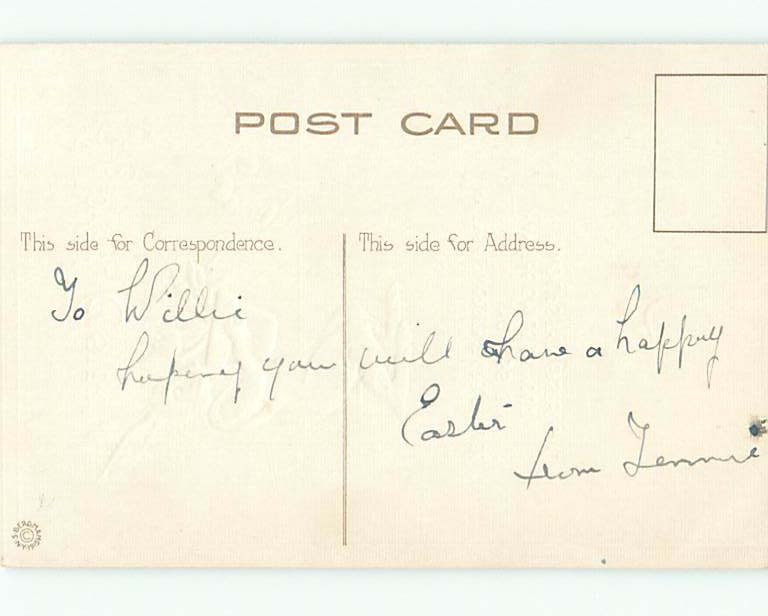 POST CARD
This side for Correspondence.
This side for Address.
To Willie
hoping you will have a happy
Easter
from Jennie